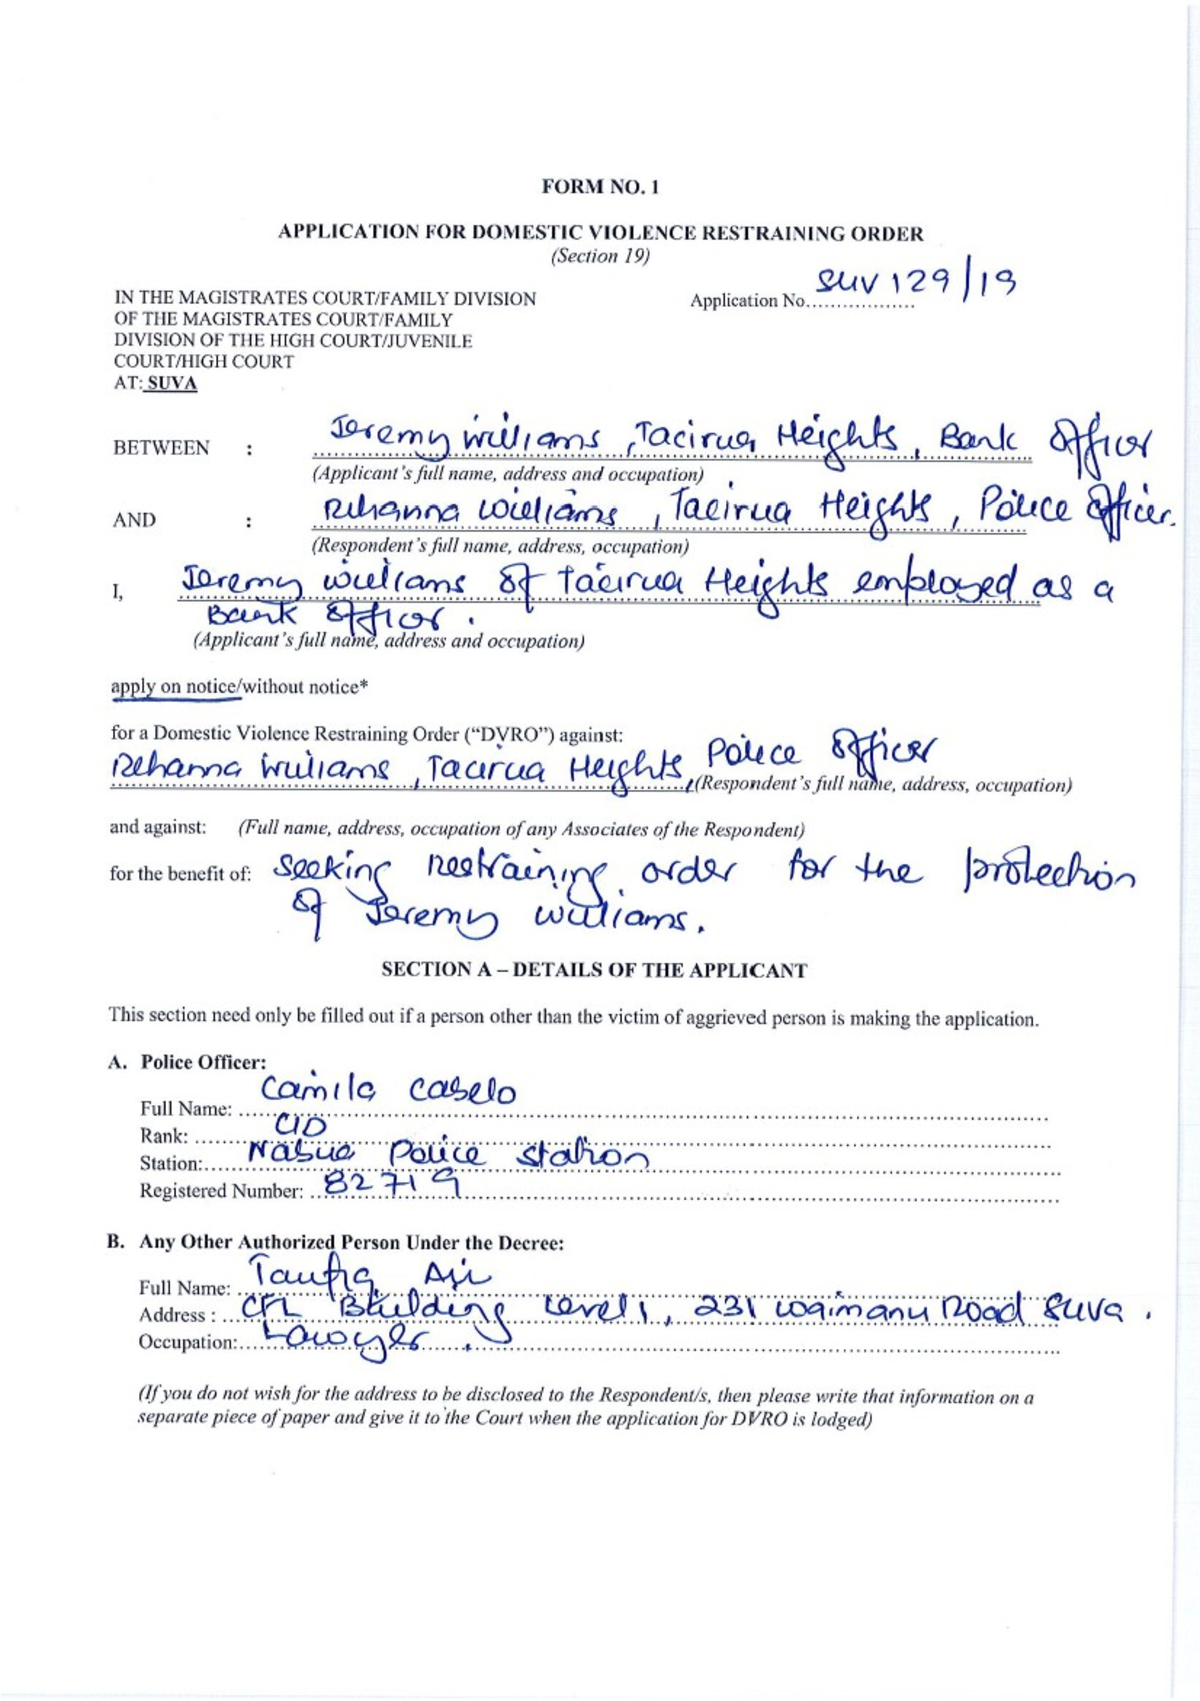 FORM NO. 1
APPLICATION FOR DOMESTIC VIOLENCE RESTRAINING ORDER
(Section 19)
IN THE MAGISTRATES COURT/FAMILY DIVISION
OF THE MAGISTRATES COURT/FAMILY
DIVISION OF THE HIGH COURT/JUVENILE
COURT/HIGH COURT
AT: SUVA
Application No. SUV 129/19
BETWEEN : Jeremy Williams, Tacirua Heights, Bank Officer
(Applicant's full name, address and occupation)
AND : Rihanna Williams, Tacirua Heights, Police Officer.
(Respondent's full name, address, occupation)
I, Jeremy Williams of Tacirua Heights employed as a
Bank Officer.
(Applicant's full name, address and occupation)
apply on notice/without notice*
for a Domestic Violence Restraining Order ("DVRO") against:
Rihanna Williams, Tacirua Heights, Police Officer
(Respondent's full name, address, occupation)
and against: (Full name, address, occupation of any Associates of the Respondent)
for the benefit of: seeking restraining order for the protection
of Jeremy Williams.
SECTION A – DETAILS OF THE APPLICANT
This section need only be filled out if a person other than the victim of aggrieved person is making the application.
A. Police Officer:
Full Name: Camila Cabelo
Rank: CID
Station: Nabua Police Station
Registered Number: 82719
B. Any Other Authorized Person Under the Decree:
Full Name: Taufiq
Address : CFL Building Level 1, 231 Waimanu Road Suva.
Occupation: Lawyer.
(If you do not wish for the address to be disclosed to the Respondent/s, then please write that information on a
separate piece of paper and give it to the Court when the application for DVRO is lodged)